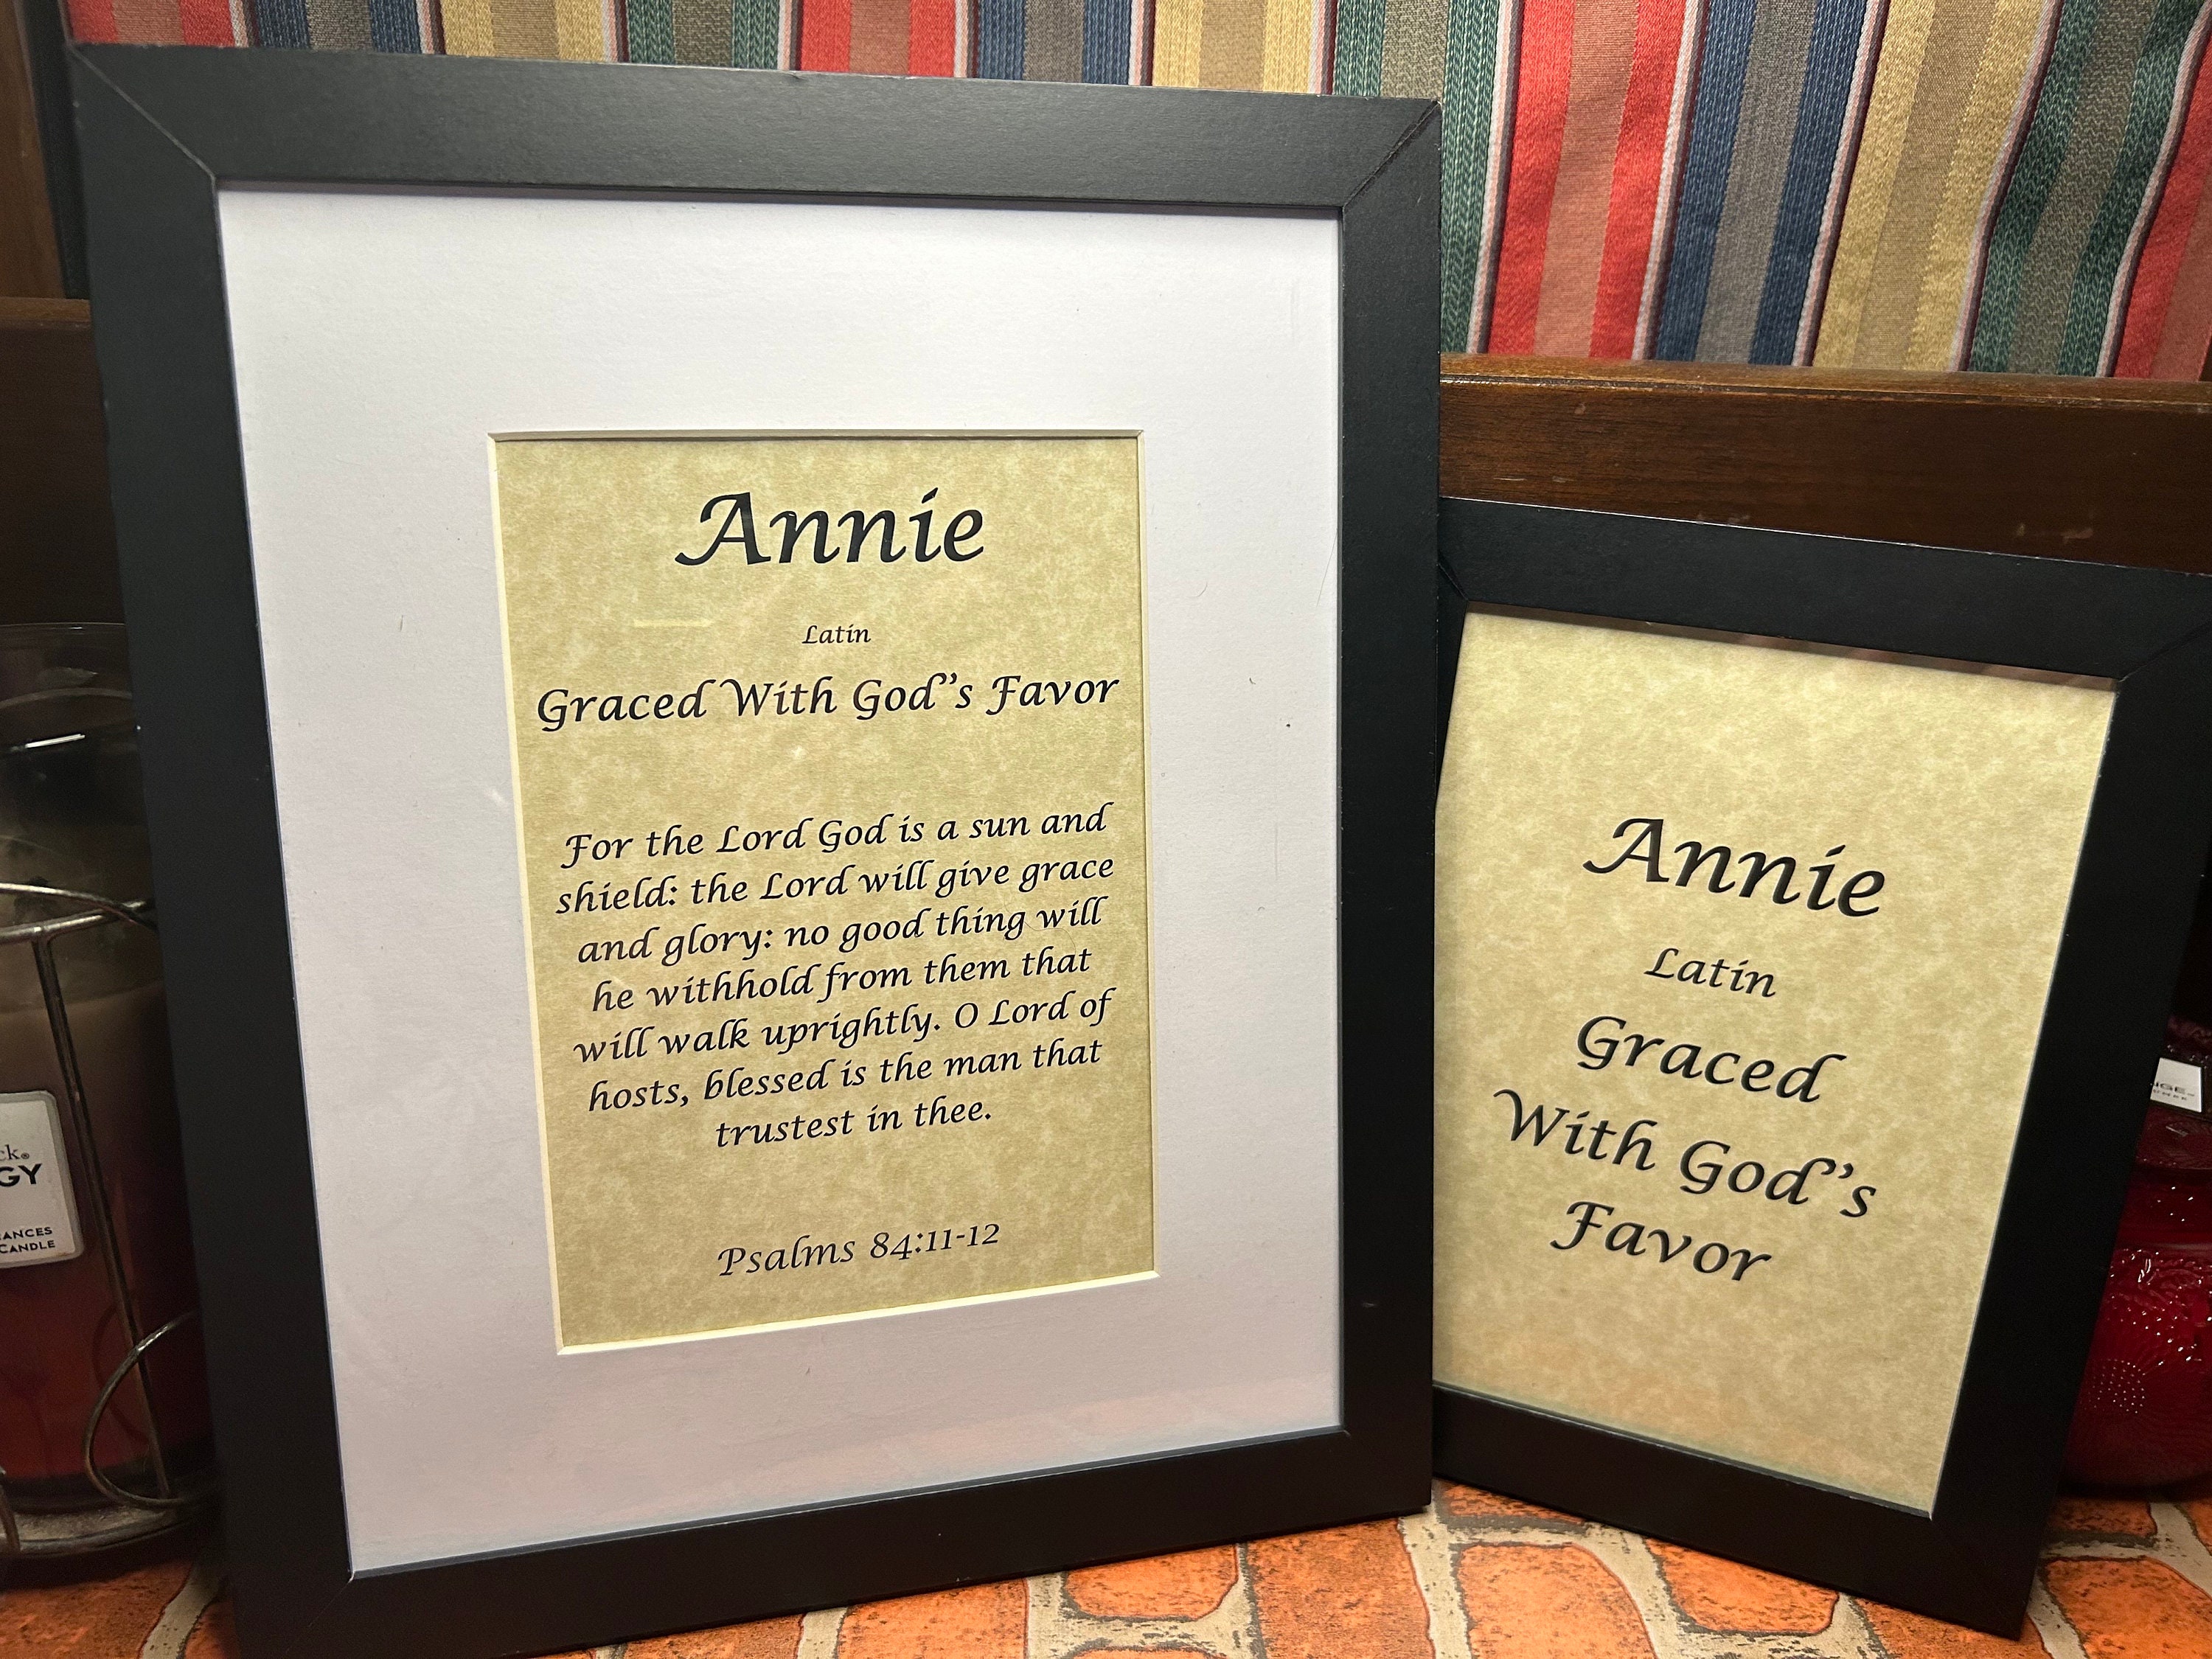 Annie
Latin
Graced With God's Favor
For the Lord God is a sun and
shield: the Lord will give grace
and glory: no good thing will
he withhold from them that
will walk uprightly. O Lord of
hosts, blessed is the man that
trustest in thee.
Psalms 84:11-12
Annie
Latin
Graced
With God's
Favor
ck®
GY
ANCES
CANDLE